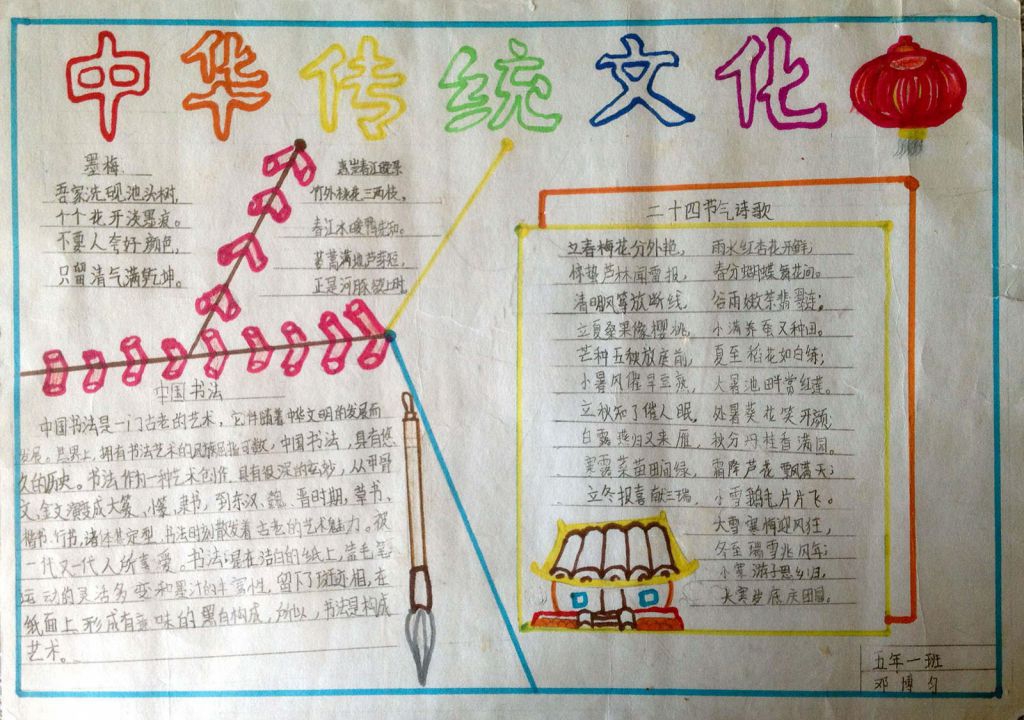 中华传统文化
墨梅
吾家洗砚池头树,
个个花开淡墨痕。
不要人夸好颜色,
只留清气满乾坤。
惠崇春江晚景
竹外桃花三两枝,
春江水暖鸭先知。
蒌蒿满地芦芽短,
正是河豚欲上时。
中国书法
中国书法是一门古老的艺术,它伴随着中华文明的发展而
发展。世界上,拥有书法艺术的民族屈指可数,中国书法,具有悠
久的历史。书法作为一种艺术创作,具有很深的玄妙,从甲骨
文、金文演变成大篆、小篆、隶书,到东汉、魏、晋时期,草书、
楷书、行书,诸体基定型,书法时刻散发着古老的艺术魅力。被
一代又一代人所喜爱。书法:是在洁白的纸上,靠毛笔
运动的灵活多变和墨汁的丰富性,留下斑迹相,在
纸面上形成有意味的黑白构成,所以,书法是构成
艺术。
二十四节气诗歌
立春梅花分外艳, 雨水红杏花开鲜;
惊蛰芦林闻雷报, 春分蝴蝶舞花间。
清明风筝放断线, 谷雨嫩茶翡翠连;
立夏桑果像樱桃, 小满养蚕又种田。
芒种五秧放庭前, 夏至稻花如白练;
小暑风催早豆熟, 大暑池畔赏红莲。
立秋知了催人眠, 处暑葵花笑开颜;
白露燕归又来雁, 秋分丹桂香满园。
寒露菜苗田间绿, 霜降芦花飘满天;
立冬报喜献三瑞, 小雪鹅毛片片飞。
大雪寒梅迎风狂,
冬至瑞雪兆风年;
小寒游子思乡归,
大寒岁底庆团圆。
五年一班
邓博匀